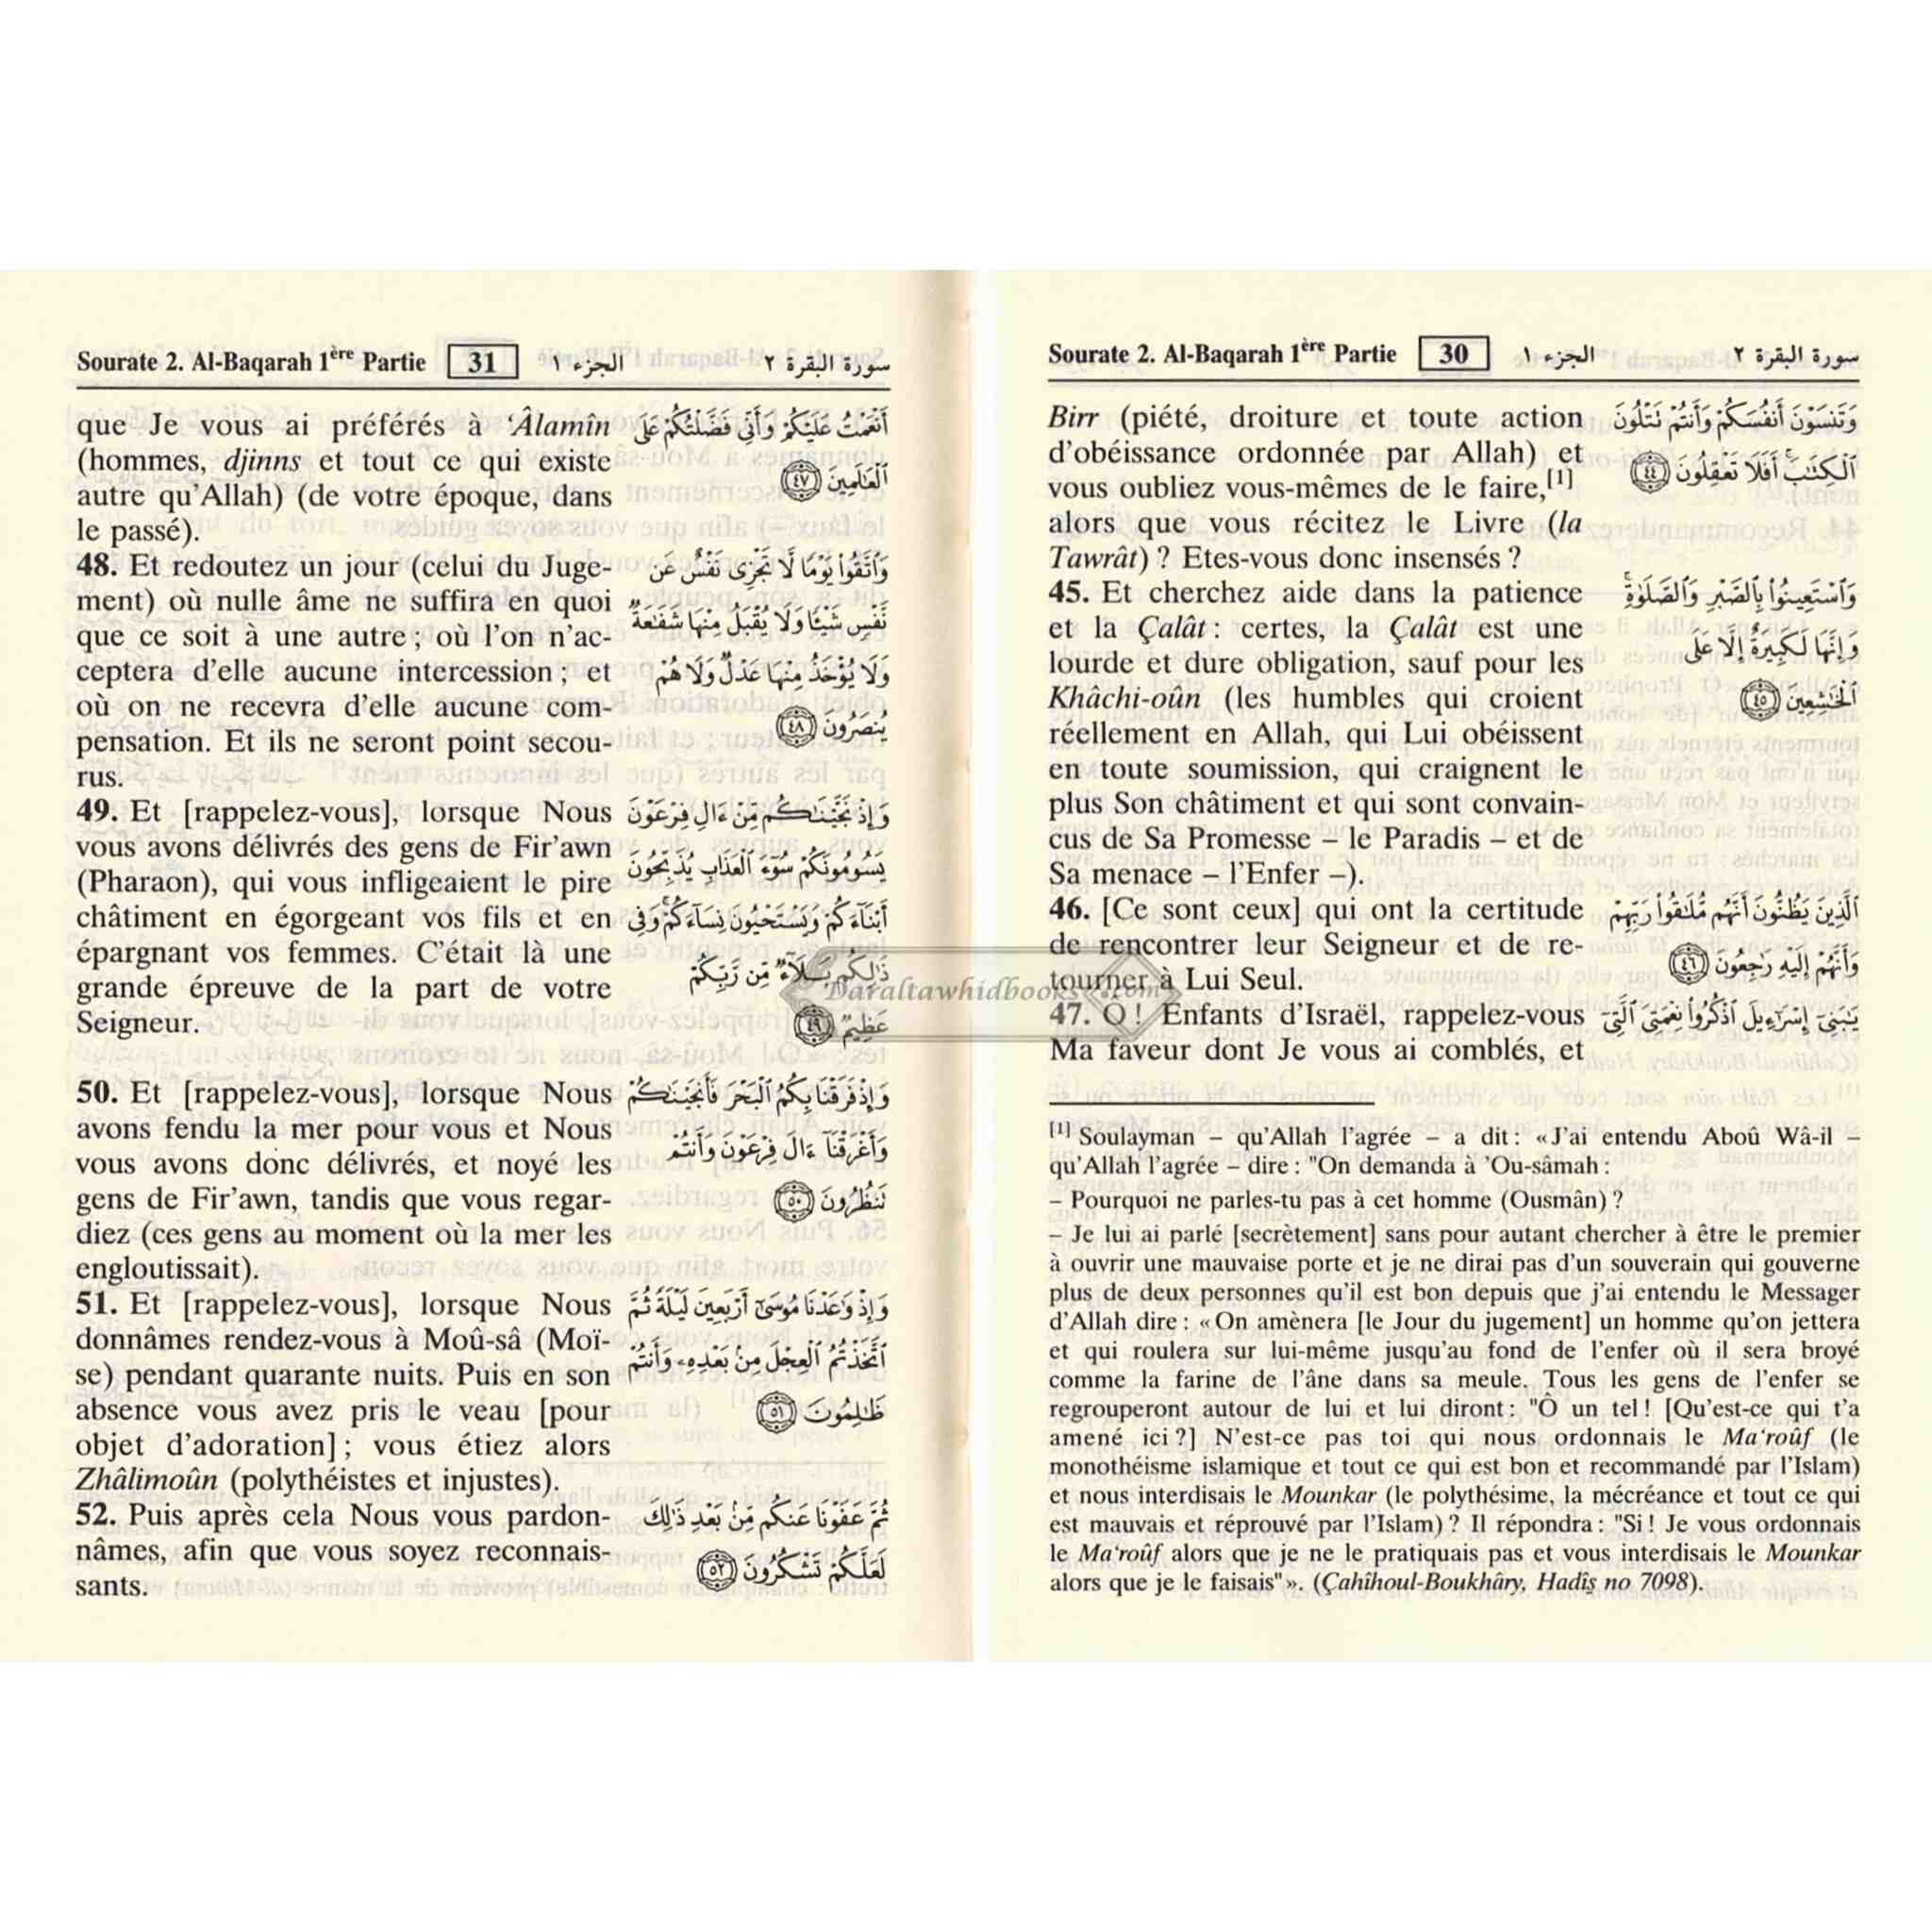 Sourate 2. Al-Baqarah 1ère Partie 30 الجزء ١ سورة البقرة ٢
Birr (piété, droiture et toute action
d'obéissance ordonnée par Allah) et
vous oubliez vous-mêmes de le faire,[1]
alors que vous récitez le Livre (la
Tawrât) ? Etes-vous donc insensés ?
45. Et cherchez aide dans la patience
et la Çalât : certes, la Çalât est une
lourde et dure obligation, sauf pour les
Khâchi-oûn (les humbles qui croient
réellement en Allah, qui Lui obéissent
en toute soumission, qui craignent le
plus Son châtiment et qui sont convain-
cus de Sa Promesse – le Paradis – et de
Sa menace – l'Enfer –).
46. [Ce sont ceux] qui ont la certitude
de rencontrer leur Seigneur et de re-
tourner à Lui Seul.
47. Ô ! Enfants d'Israël, rappelez-vous
Ma faveur dont Je vous ai comblés, et
وَتَنسَوْنَ أَنفُسَكُمْ وَأَنتُمْ تَتْلُونَ
ٱلْكِتَٰبَ ۚ أَفَلَا تَعْقِلُونَ ٤٤
وَٱسْتَعِينُوا۟ بِٱلصَّبْرِ وَٱلصَّلَوٰةِ ۚ
وَإِنَّهَا لَكَبِيرَةٌ إِلَّا عَلَى
ٱلْخَٰشِعِينَ ٤٥
ٱلَّذِينَ يَظُنُّونَ أَنَّهُم مُّلَٰقُوا۟ رَبِّهِمْ
وَأَنَّهُمْ إِلَيْهِ رَٰجِعُونَ ٤٦
يَٰبَنِىٓ إِسْرَٰٓءِيلَ ٱذْكُرُوا۟ نِعْمَتِىَ ٱلَّتِىٓ
[1] Soulayman – qu'Allah l'agrée – a dit : «J'ai entendu Aboû Wâ-il –
qu'Allah l'agrée – dire : "On demanda à 'Ou-sâmah :
– Pourquoi ne parles-tu pas à cet homme (Ousmân) ?
– Je lui ai parlé [secrètement] sans pour autant chercher à être le premier
à ouvrir une mauvaise porte et je ne dirai pas d'un souverain qui gouverne
plus de deux personnes qu'il est bon depuis que j'ai entendu le Messager
d'Allah dire : « On amènera [le Jour du jugement] un homme qu'on jettera
et qui roulera sur lui-même jusqu'au fond de l'enfer où il sera broyé
comme la farine de l'âne dans sa meule. Tous les gens de l'enfer se
regrouperont autour de lui et lui diront : "Ô un tel ! [Qu'est-ce qui t'a
amené ici ?] N'est-ce pas toi qui nous ordonnais le Ma'roûf (le
monothéisme islamique et tout ce qui est bon et recommandé par l'Islam)
et nous interdisais le Mounkar (le polythésime, la mécréance et tout ce qui
est mauvais et réprouvé par l'Islam) ? Il répondra : "Si ! Je vous ordonnais
le Ma'roûf alors que je ne le pratiquais pas et vous interdisais le Mounkar
alors que je le faisais"». (Çahîhoul-Boukhâry, Hadîs no 7098).
Sourate 2. Al-Baqarah 1ère Partie 31 الجزء ١ سورة البقرة ٢
que Je vous ai préférés à 'Âlamîn
(hommes, djinns et tout ce qui existe
autre qu'Allah) (de votre époque, dans
le passé).
48. Et redoutez un jour (celui du Juge-
ment) où nulle âme ne suffira en quoi
que ce soit à une autre ; où l'on n'ac-
ceptera d'elle aucune intercession ; et
où on ne recevra d'elle aucune com-
pensation. Et ils ne seront point secou-
rus.
49. Et [rappelez-vous], lorsque Nous
vous avons délivrés des gens de Fir'awn
(Pharaon), qui vous infligeaient le pire
châtiment en égorgeant vos fils et en
épargnant vos femmes. C'était là une
grande épreuve de la part de votre
Seigneur.
50. Et [rappelez-vous], lorsque Nous
avons fendu la mer pour vous et Nous
vous avons donc délivrés, et noyé les
gens de Fir'awn, tandis que vous regar-
diez (ces gens au moment où la mer les
engloutissait).
51. Et [rappelez-vous], lorsque Nous
donnâmes rendez-vous à Moû-sâ (Moï-
se) pendant quarante nuits. Puis en son
absence vous avez pris le veau [pour
objet d'adoration] ; vous étiez alors
Zhâlimoûn (polythéistes et injustes).
52. Puis après cela Nous vous pardon-
nâmes, afin que vous soyez reconnais-
sants.
أَنْعَمْتُ عَلَيْكُمْ وَأَنِّى فَضَّلْتُكُمْ عَلَى
ٱلْعَٰلَمِينَ ٤٧
وَٱتَّقُوا۟ يَوْمًا لَّا تَجْزِى نَفْسٌ عَن
نَّفْسٍ شَيْـًٔا وَلَا يُقْبَلُ مِنْهَا شَفَٰعَةٌ
وَلَا يُؤْخَذُ مِنْهَا عَدْلٌ وَلَا هُمْ
يُنصَرُونَ ٤٨
وَإِذْ نَجَّيْنَٰكُم مِّنْ ءَالِ فِرْعَوْنَ
يَسُومُونَكُمْ سُوٓءَ ٱلْعَذَابِ يُذَبِّحُونَ
أَبْنَآءَكُمْ وَيَسْتَحْيُونَ نِسَآءَكُمْ ۚ وَفِى
ذَٰلِكُم بَلَآءٌ مِّن رَّبِّكُمْ
عَظِيمٌ ٤٩
وَإِذْ فَرَقْنَا بِكُمُ ٱلْبَحْرَ فَأَنجَيْنَٰكُمْ
وَأَغْرَقْنَآ ءَالَ فِرْعَوْنَ وَأَنتُمْ
تَنظُرُونَ ٥٠
وَإِذْ وَٰعَدْنَا مُوسَىٰٓ أَرْبَعِينَ لَيْلَةً ثُمَّ
ٱتَّخَذْتُمُ ٱلْعِجْلَ مِنۢ بَعْدِهِۦ وَأَنتُمْ
ظَٰلِمُونَ ٥١
ثُمَّ عَفَوْنَا عَنكُم مِّنۢ بَعْدِ ذَٰلِكَ
لَعَلَّكُمْ تَشْكُرُونَ ٥٢
Daraltawhidbooks.com